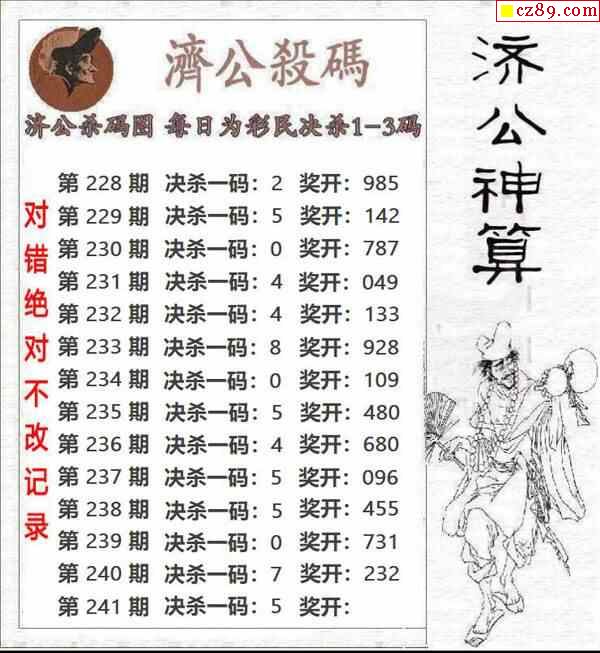 cz89.com
濟公殺碼
济公杀码图 每日为彩民决杀1-3码
第 228 期 决杀一码：2 奖开：985
第 229 期 决杀一码：5 奖开：142
第 230 期 决杀一码：0 奖开：787
第 231 期 决杀一码：4 奖开：049
第 232 期 决杀一码：4 奖开：133
第 233 期 决杀一码：8 奖开：928
第 234 期 决杀一码：0 奖开：109
第 235 期 决杀一码：5 奖开：480
第 236 期 决杀一码：4 奖开：680
第 237 期 决杀一码：5 奖开：096
第 238 期 决杀一码：5 奖开：455
第 239 期 决杀一码：0 奖开：731
第 240 期 决杀一码：7 奖开：232
第 241 期 决杀一码：5 奖开：
对错绝对不改记录
济公神算